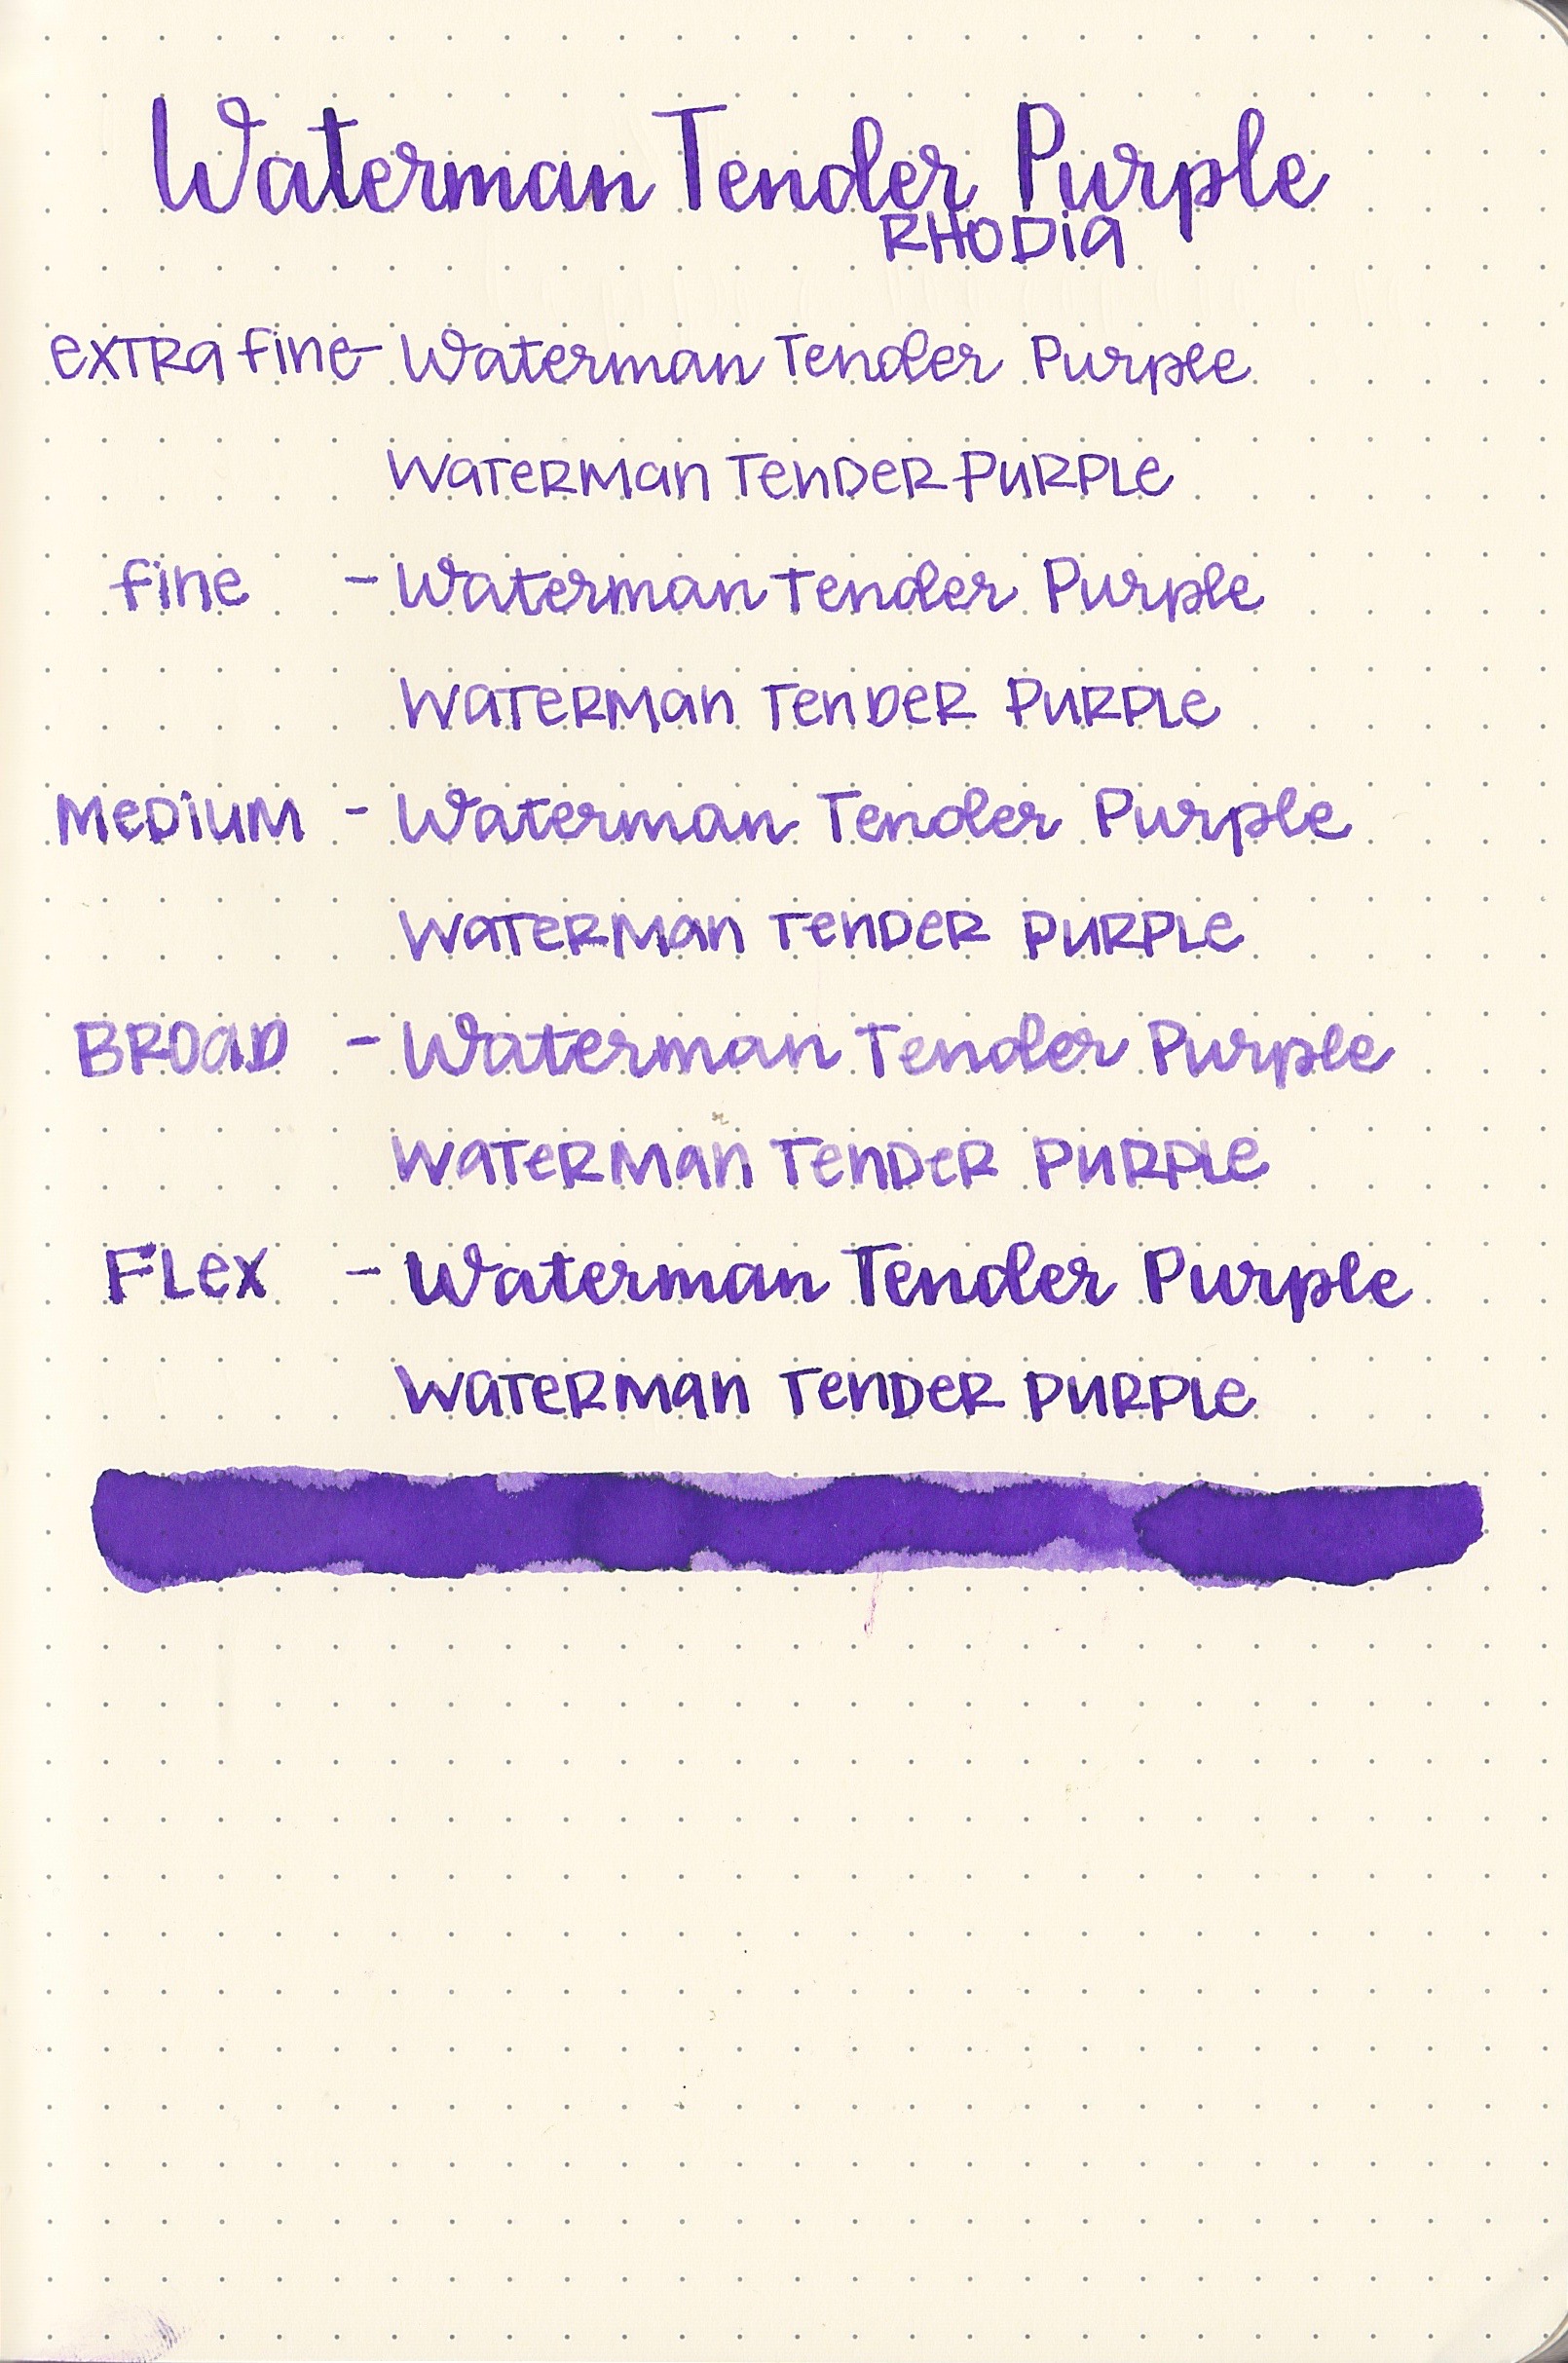 Waterman Tender Purple
RHODia
exTRa fine - Waterman Tender Purple
WaTeRMan TenDeR PuRPLe
fine - Waterman Tender Purple
WaTeRMan TenDeR PuRPLe
MeDiuM - Waterman Tender Purple
WaTeRMan TenDeR PuRPLe
BROaD - Waterman Tender Purple
WaTeRMan TenDeR PuRPLe
FLex - Waterman Tender Purple
WaTeRMan TenDeR PuRPLe